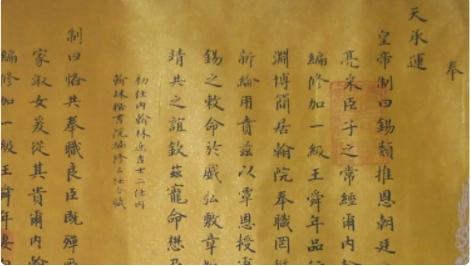 奉
天承運
皇帝制曰錫類推恩朝廷
亮采臣子之常經爾內
編修加一級王舜年品
淵博簡居翰院奉職罔
新綸用賁茲以覃恩授
錫之敕命於戲弘敷章
靖共之誼欽茲寵命懋乃
初任內翰林庶吉士二任內
翰林秘書院編修三任今職
制曰恪共奉職良臣既殫
家淑女爰從其貴爾內
編修加一級王舜年妻